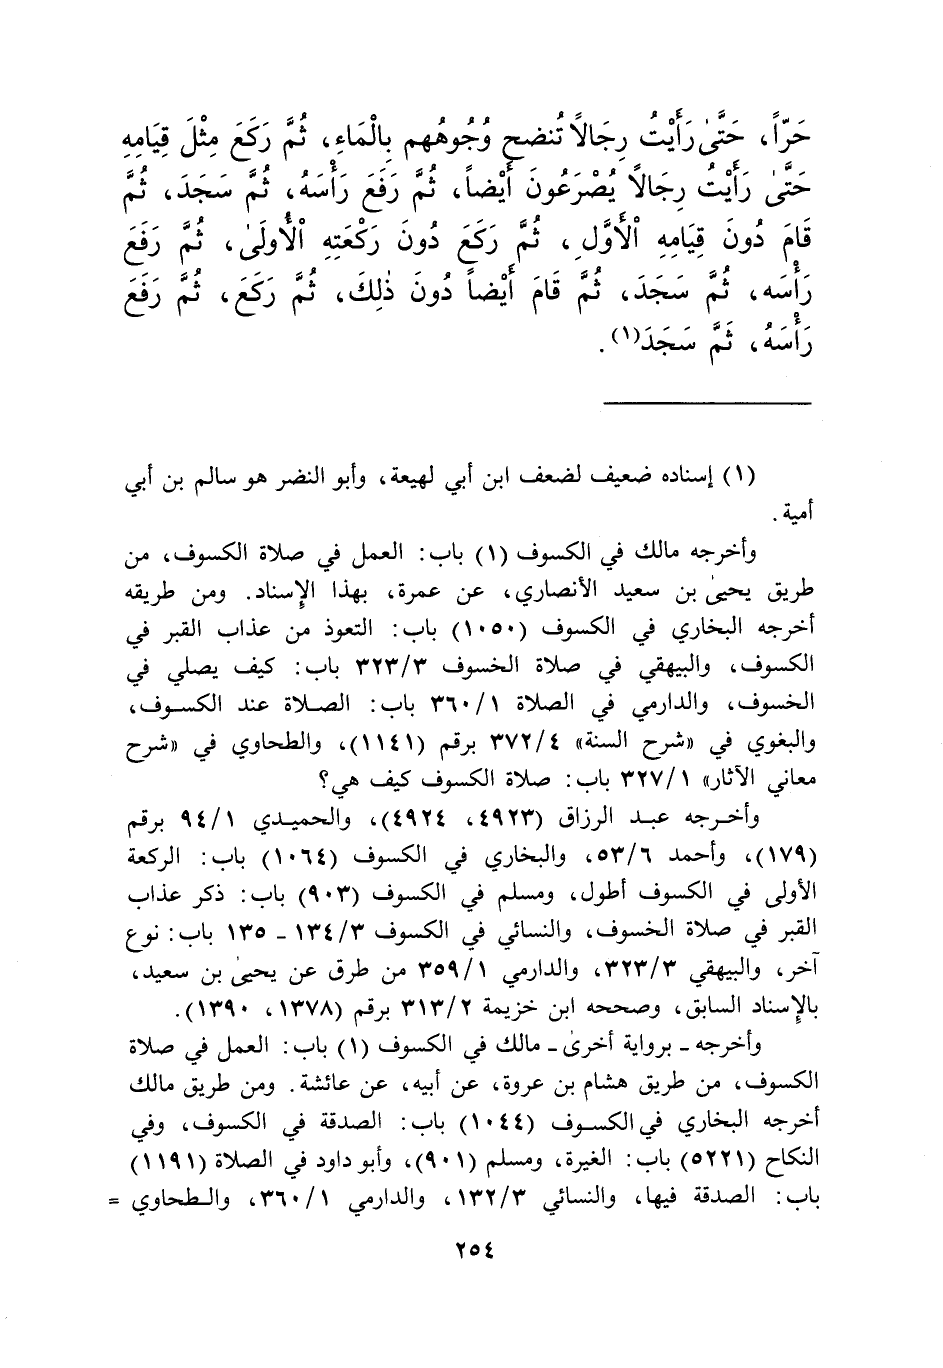 حَرّاً، حَتَّىٰ رَأَيْتُ رِجَالاً تُنضح وُجُوهُهم بِالْمَاءِ، ثُمَّ رَكَعَ مِثْلَ قِيَامِهِ
حَتَّىٰ رَأَيْتُ رِجَالاً يُصْرَعُونَ أَيْضاً، ثُمَّ رَفَعَ رَأْسَهُ، ثُمَّ سَجَدَ، ثُمَّ
قَامَ دُونَ قِيَامِهِ الْأَوَّلِ، ثُمَّ رَكَعَ دُونَ رَكْعَتِهِ الْأُولَىٰ، ثُمَّ رَفَعَ
رَأْسَه، ثُمَّ سَجَدَ، ثُمَّ قَامَ أَيْضاً دُونَ ذٰلِكَ، ثُمَّ رَكَعَ، ثُمَّ رَفَعَ
رَأْسَهُ، ثَمَّ سَجَدَ(١).
(١) إسناده ضعيف لضعف ابن أبي لهيعة، وأبو النضر هو سالم بن أبي
أمية.
وأخرجه مالك في الكسوف (١) باب: العمل في صلاة الكسوف، من
طريق يحيىٰ بن سعيد الأنصاري، عن عمرة، بهذا الإسناد. ومن طريقه
أخرجه البخاري في الكسوف (١٠٥٠) باب: التعوذ من عذاب القبر في
الكسوف، والبيهقي في صلاة الخسوف ٣٢٣/٣ باب: كيف يصلي في
الخسوف، والدارمي في الصلاة ٣٦٠/١ باب: الصلاة عند الكسوف،
والبغوي في «شرح السنة» ٣٧٢/٤ برقم (١١٤١)، والطحاوي في «شرح
معاني الآثار» ٣٢٧/١ باب: صلاة الكسوف كيف هي؟
وأخرجه عبد الرزاق (٤٩٢٣، ٤٩٢٤)، والحميدي ٩٤/١ برقم
(١٧٩)، وأحمد ٥٣/٦، والبخاري في الكسوف (١٠٦٤) باب: الركعة
الأولى في الكسوف أطول، ومسلم في الكسوف (٩٠٣) باب: ذكر عذاب
القبر في صلاة الخسوف، والنسائي في الكسوف ١٣٤/٣ - ١٣٥ باب: نوع
آخر، والبيهقي ٣٢٣/٣، والدارمي ٣٥٩/١ من طرق عن يحيىٰ بن سعيد،
بالإسناد السابق، وصححه ابن خزيمة ٣١٣/٢ برقم (١٣٧٨، ١٣٩٠).
وأخرجه - برواية أخرىٰ - مالك في الكسوف (١) باب: العمل في صلاة
الكسوف، من طريق هشام بن عروة، عن أبيه، عن عائشة. ومن طريق مالك
أخرجه البخاري في الكسوف (١٠٤٤) باب: الصدقة في الكسوف، وفي
النكاح (٥٢٢١) باب: الغيرة، ومسلم (٩٠١)، وأبو داود في الصلاة (١١٩١)
باب: الصدقة فيها، والنسائي ١٣٢/٣، والدارمي ٣٦٠/١، والطحاوي =
٢٥٤